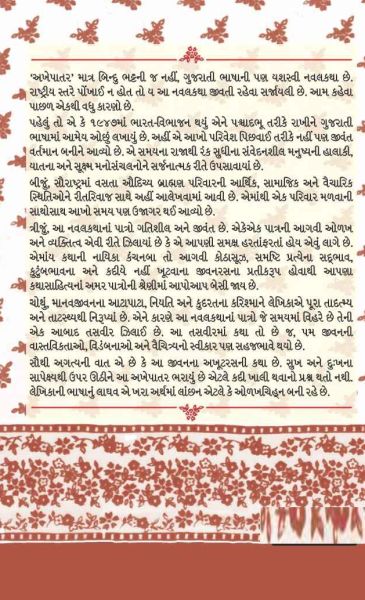 ‘અખેપાતર’ માત્ર બિન્દુ ભટ્ટની જ નહીં, ગુજરાતી ભાષાની પણ યશસ્વી નવલકથા છે.
રાષ્ટ્રીય સ્તરે પોંખાઈ ન હોત તો ય આ નવલકથા જીવતી રહેવા સર્જાયલી છે. આમ કહેવા
પાછળ એકથી વધુ કારણો છે.
પહેલું તો એ કે ૧૯૪૭માં ભારત-વિભાજન થયું એને પશ્ચાદભૂ તરીકે રાખીને ગુજરાતી
ભાષામાં આમેય ઓછું લખાયું છે. અહીં એ આખો પરિવેશ પિછવાઈ તરીકે નહીં પણ જીવંત
વર્તમાન બનીને આવ્યો છે. એ સમયના રાજાથી રંક સુધીના સંવેદનશીલ મનુષ્યની હાલાકી,
યાતના અને સૂક્ષ્મ મનોસંચલનોને સર્જનાત્મક રીતે ઉપસાવાયાં છે.
બીજું, સૌરાષ્ટ્રમાં વસતા ઔદિચ્ય બ્રાહ્મણ પરિવારની આર્થિક, સામાજિક અને વૈચારિક
સ્થિતિઓને રીતરિવાજ સાથે અહીં આલેખવામાં આવી છે. એમાંથી એક પરિવાર મળવાની
સાથોસાથ આખો સમય પણ ઉજાગર થઈ આવ્યો છે.
ત્રીજું, આ નવલકથાનાં પાત્રો ગતિશીલ અને જીવંત છે. એકેએક પાત્રની આગવી ઓળખ
અને વ્યક્તિત્વ એવી રીતે ઝિલાયાં છે કે એ આપણી સમક્ષ હરતાંફરતાં હોય એવું લાગે છે.
એમાંય કથાની નાયિકા કંચનબા તો આગવી કોઠાસૂઝ, સમષ્ટિ પ્રત્યેના સદ્ભાવ,
કુટુંબભાવના અને કદીયે નહીં ખૂટવાના જીવનરસના પ્રતીકરૂપ હોવાથી આપણા
કથાસાહિત્યનાં અમર પાત્રોની શ્રેણીમાં આપોઆપ બેસી જાય છે.
ચોથું, માનવજીવનના આટાપાટા, નિયતિ અને કુદરતના કરિશ્માને લેખિકાએ પૂરા તાદાત્મ્ય
અને તાટસ્થ્યથી નિરૂપ્યાં છે. એને કારણે આ નવલકથાનાં પાત્રો જે સમયમાં વિહરે છે તેની
એક આબાદ તસવીર ઝિલાઈ છે. આ તસવીરમાં કથા તો છે જ, પમ જીવનની
વાસ્તવિકતાઓ, વિડંબનાઓ અને વૈચિત્ર્યનો સ્વીકાર પણ સહજભાવે થયો છે.
સૌથી અગત્યની વાત એ છે કે આ જીવનના અખૂટરસની કથા છે. સુખ અને દુઃખના
સાપેક્ષથી ઉપર ઊઠીને આ અખેપાતર ભરાયું છે એટલે કદી ખાલી થવાનો પ્રશ્ન થતો નથી.
લેખિકાની ભાષાનું લાઘવ એ ખરા અર્થમાં લાંછન એટલે કે ઓળખચિહ્ન બની રહે છે.